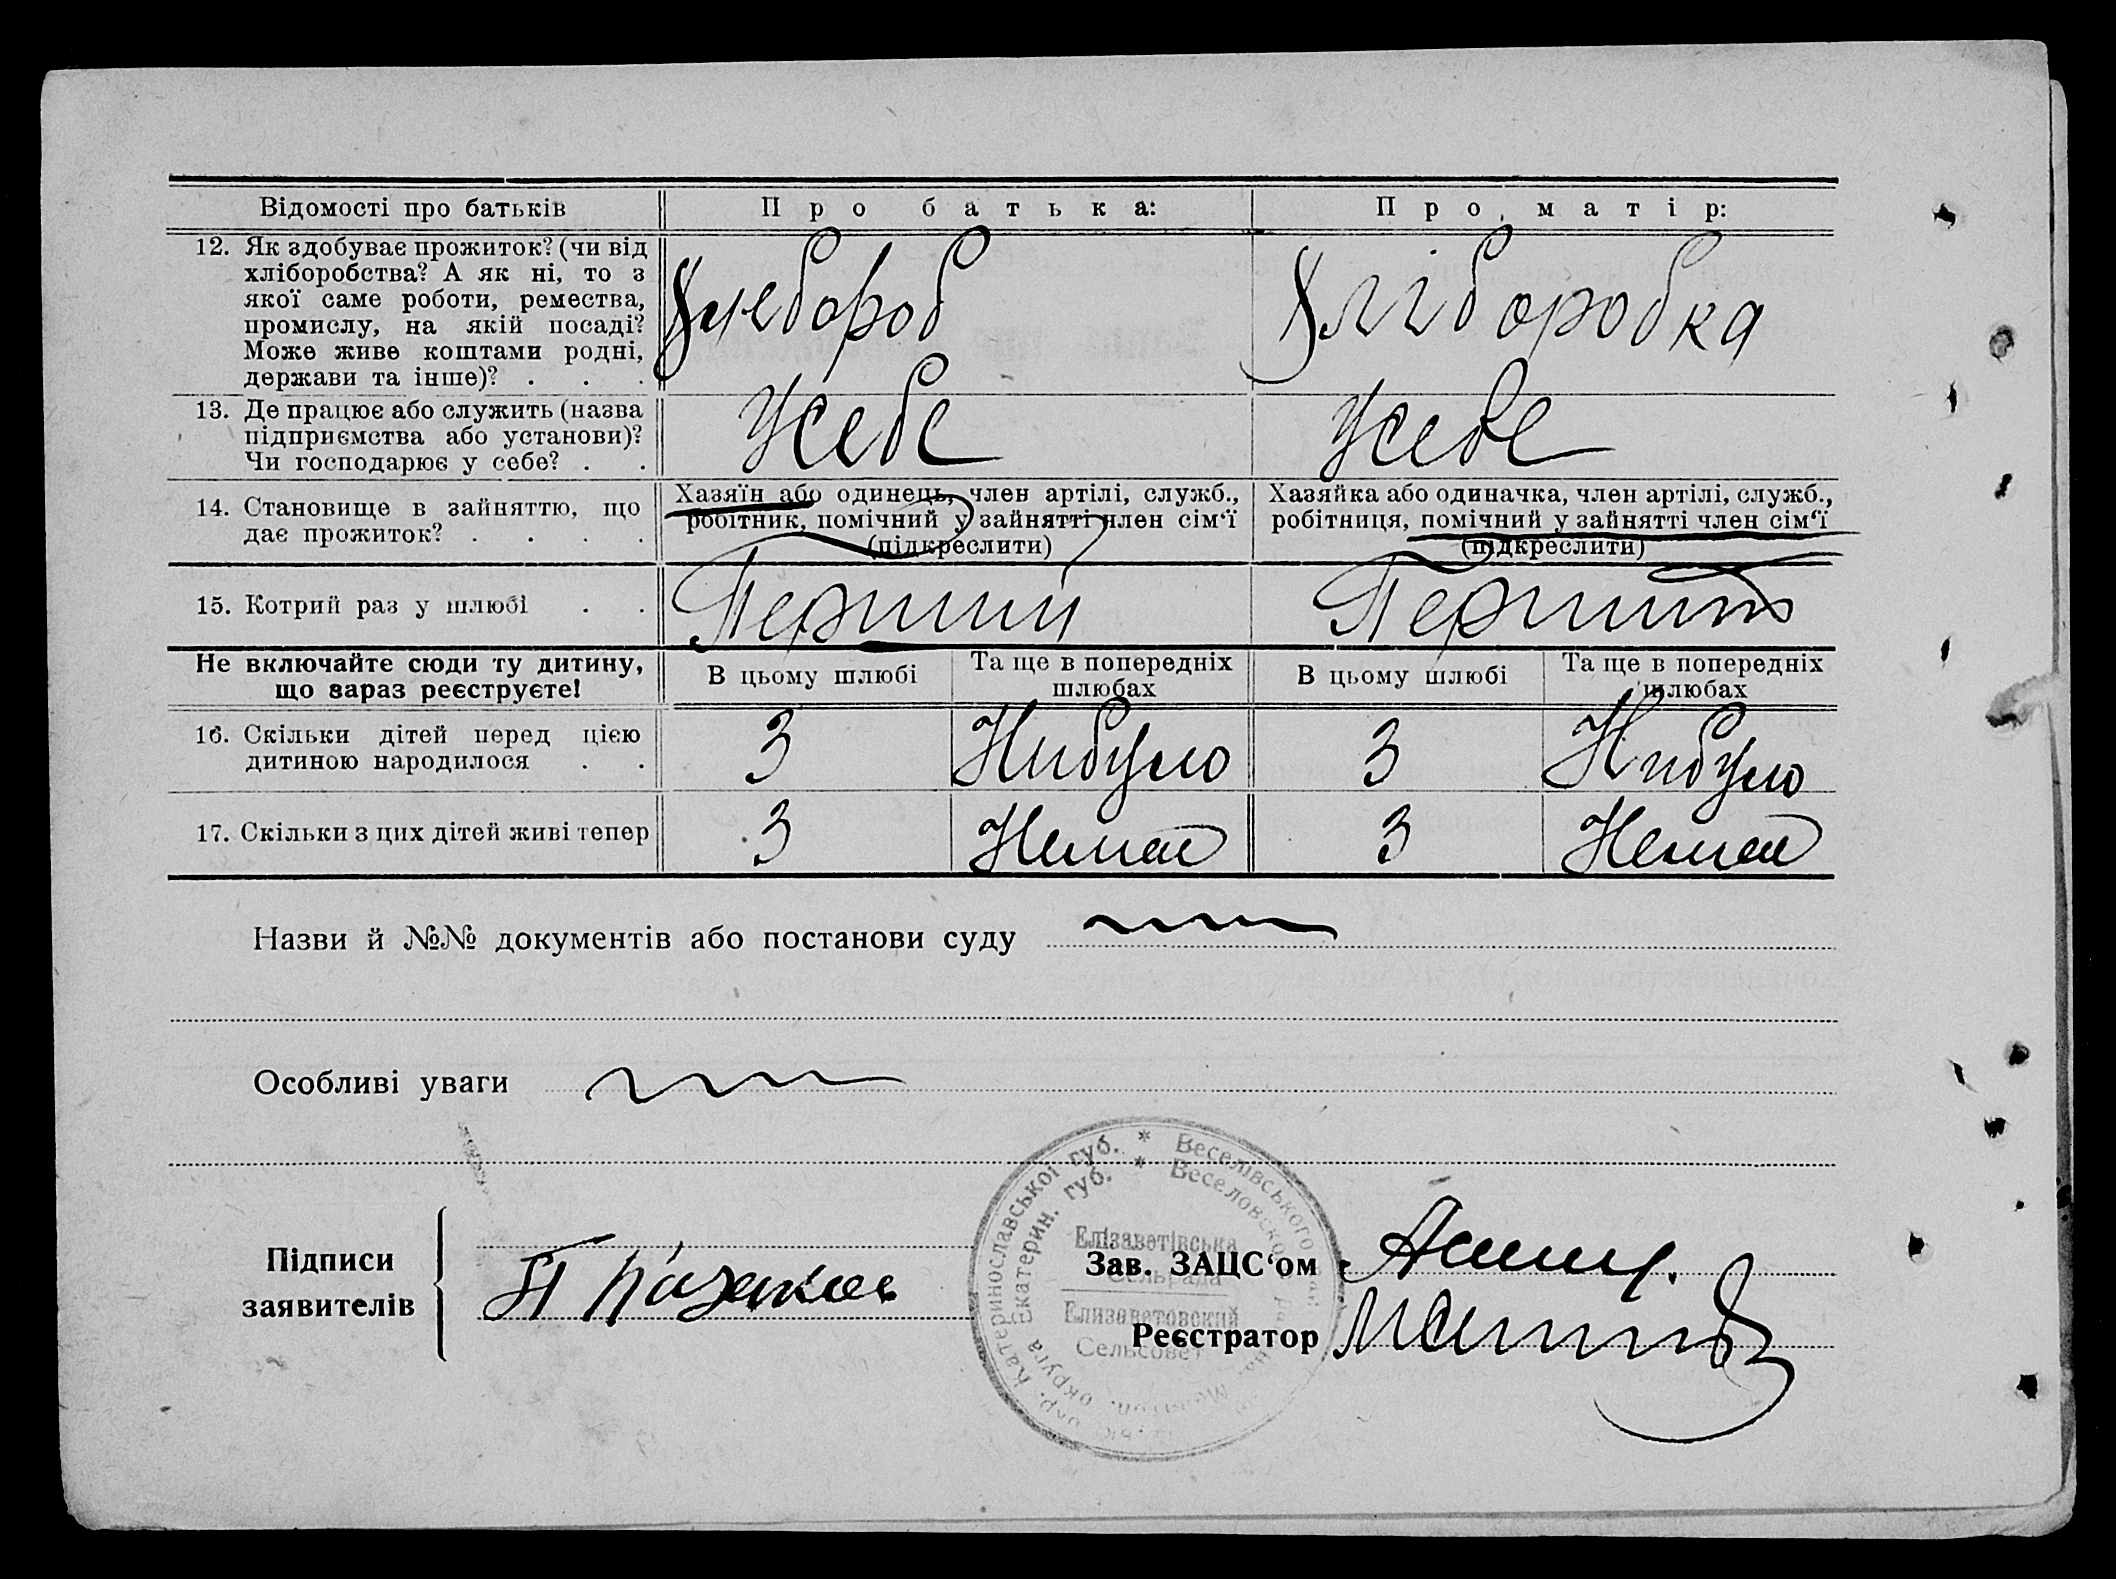 Відомості про батьків
Про батька:
Про матір:
12. Як здобуває прожиток? (чи від
хліборобства? А як ні, то з
якої саме роботи, ремества,
промислу, на якій посаді?
Може живе коштами родні,
держави та інше)? . . .
Хлебороб
Хліборобка
13. Де працює або служить (назва
підприємства або установи)?
Чи господарює у себе? . .
Усебе
Усебе
14. Становище в зайняттю, що
дає прожиток? . . . .
Хазяїн або одинець, член артілі, служб.,
робітник, помічний у зайнятті член сім‘ї
(підкреслити)
Хазяйка або одиначка, член артілі, служб.,
робітниця, помічний у зайнятті член сім‘ї
(підкреслити)
15. Котрий раз у шлюбі . .
Перший
Перший
Не включайте сюди ту дитину,
що зараз реєструєте!
В цьому шлюбі
Та ще в попередніх
шлюбах
В цьому шлюбі
Та ще в попередніх
шлюбах
16. Скільки дітей перед цією
дитиною народилося . .
3
Нибуло
3
Нибуло
17. Скільки з цих дітей живі тепер
3
Немає
3
Немає
Назви й №№ документів або постанови суду
Особливі уваги
Підписи
заявителів
Катеринославської губ. * Веселівського
Екатерин. губ. * Веселовского
округа
Елізаветівська
Сельрада
Елизаветовский
Сельсовет
Зав. ЗАЦС‘ом
Реєстратор